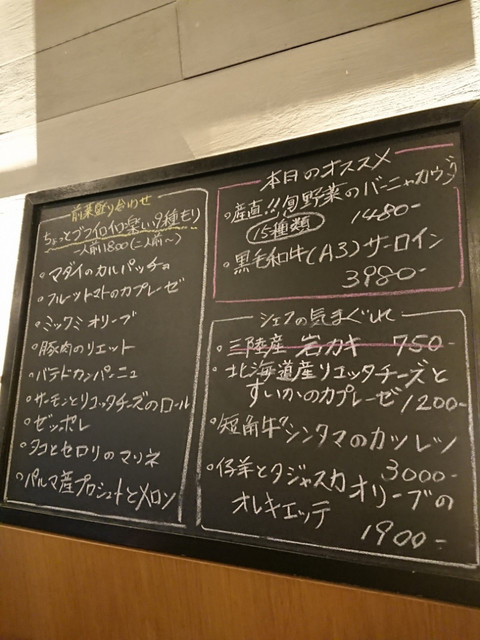 前菜盛り合わせ
ちょっとづつイロイロ楽しい9種もり
一人前1800(二人前〜)
・マダイのカルパッチョ
・フルーツトマトのカプレーゼ
・ミックスオリーブ
・豚肉のリエット
・パテドカンパーニュ
・サーモンとリコッタチーズのロール
・ゼッポレ
・タコとセロリのマリネ
・パルマ産プロシュートとメロン
本日のオススメ
・産直!!旬野菜のバーニャカウダ
15種類 1480-
・黒毛和牛(A3)サーロイン
3980-
シェフの気まぐれ
・三陸産 岩カキ 750-
・北海道産リコッタチーズと
すいかのカプレーゼ1200-
・短角牛シンタマのカツレツ
3000-
・仔羊とタジャスカオリーブの
オレキエッテ
1900-